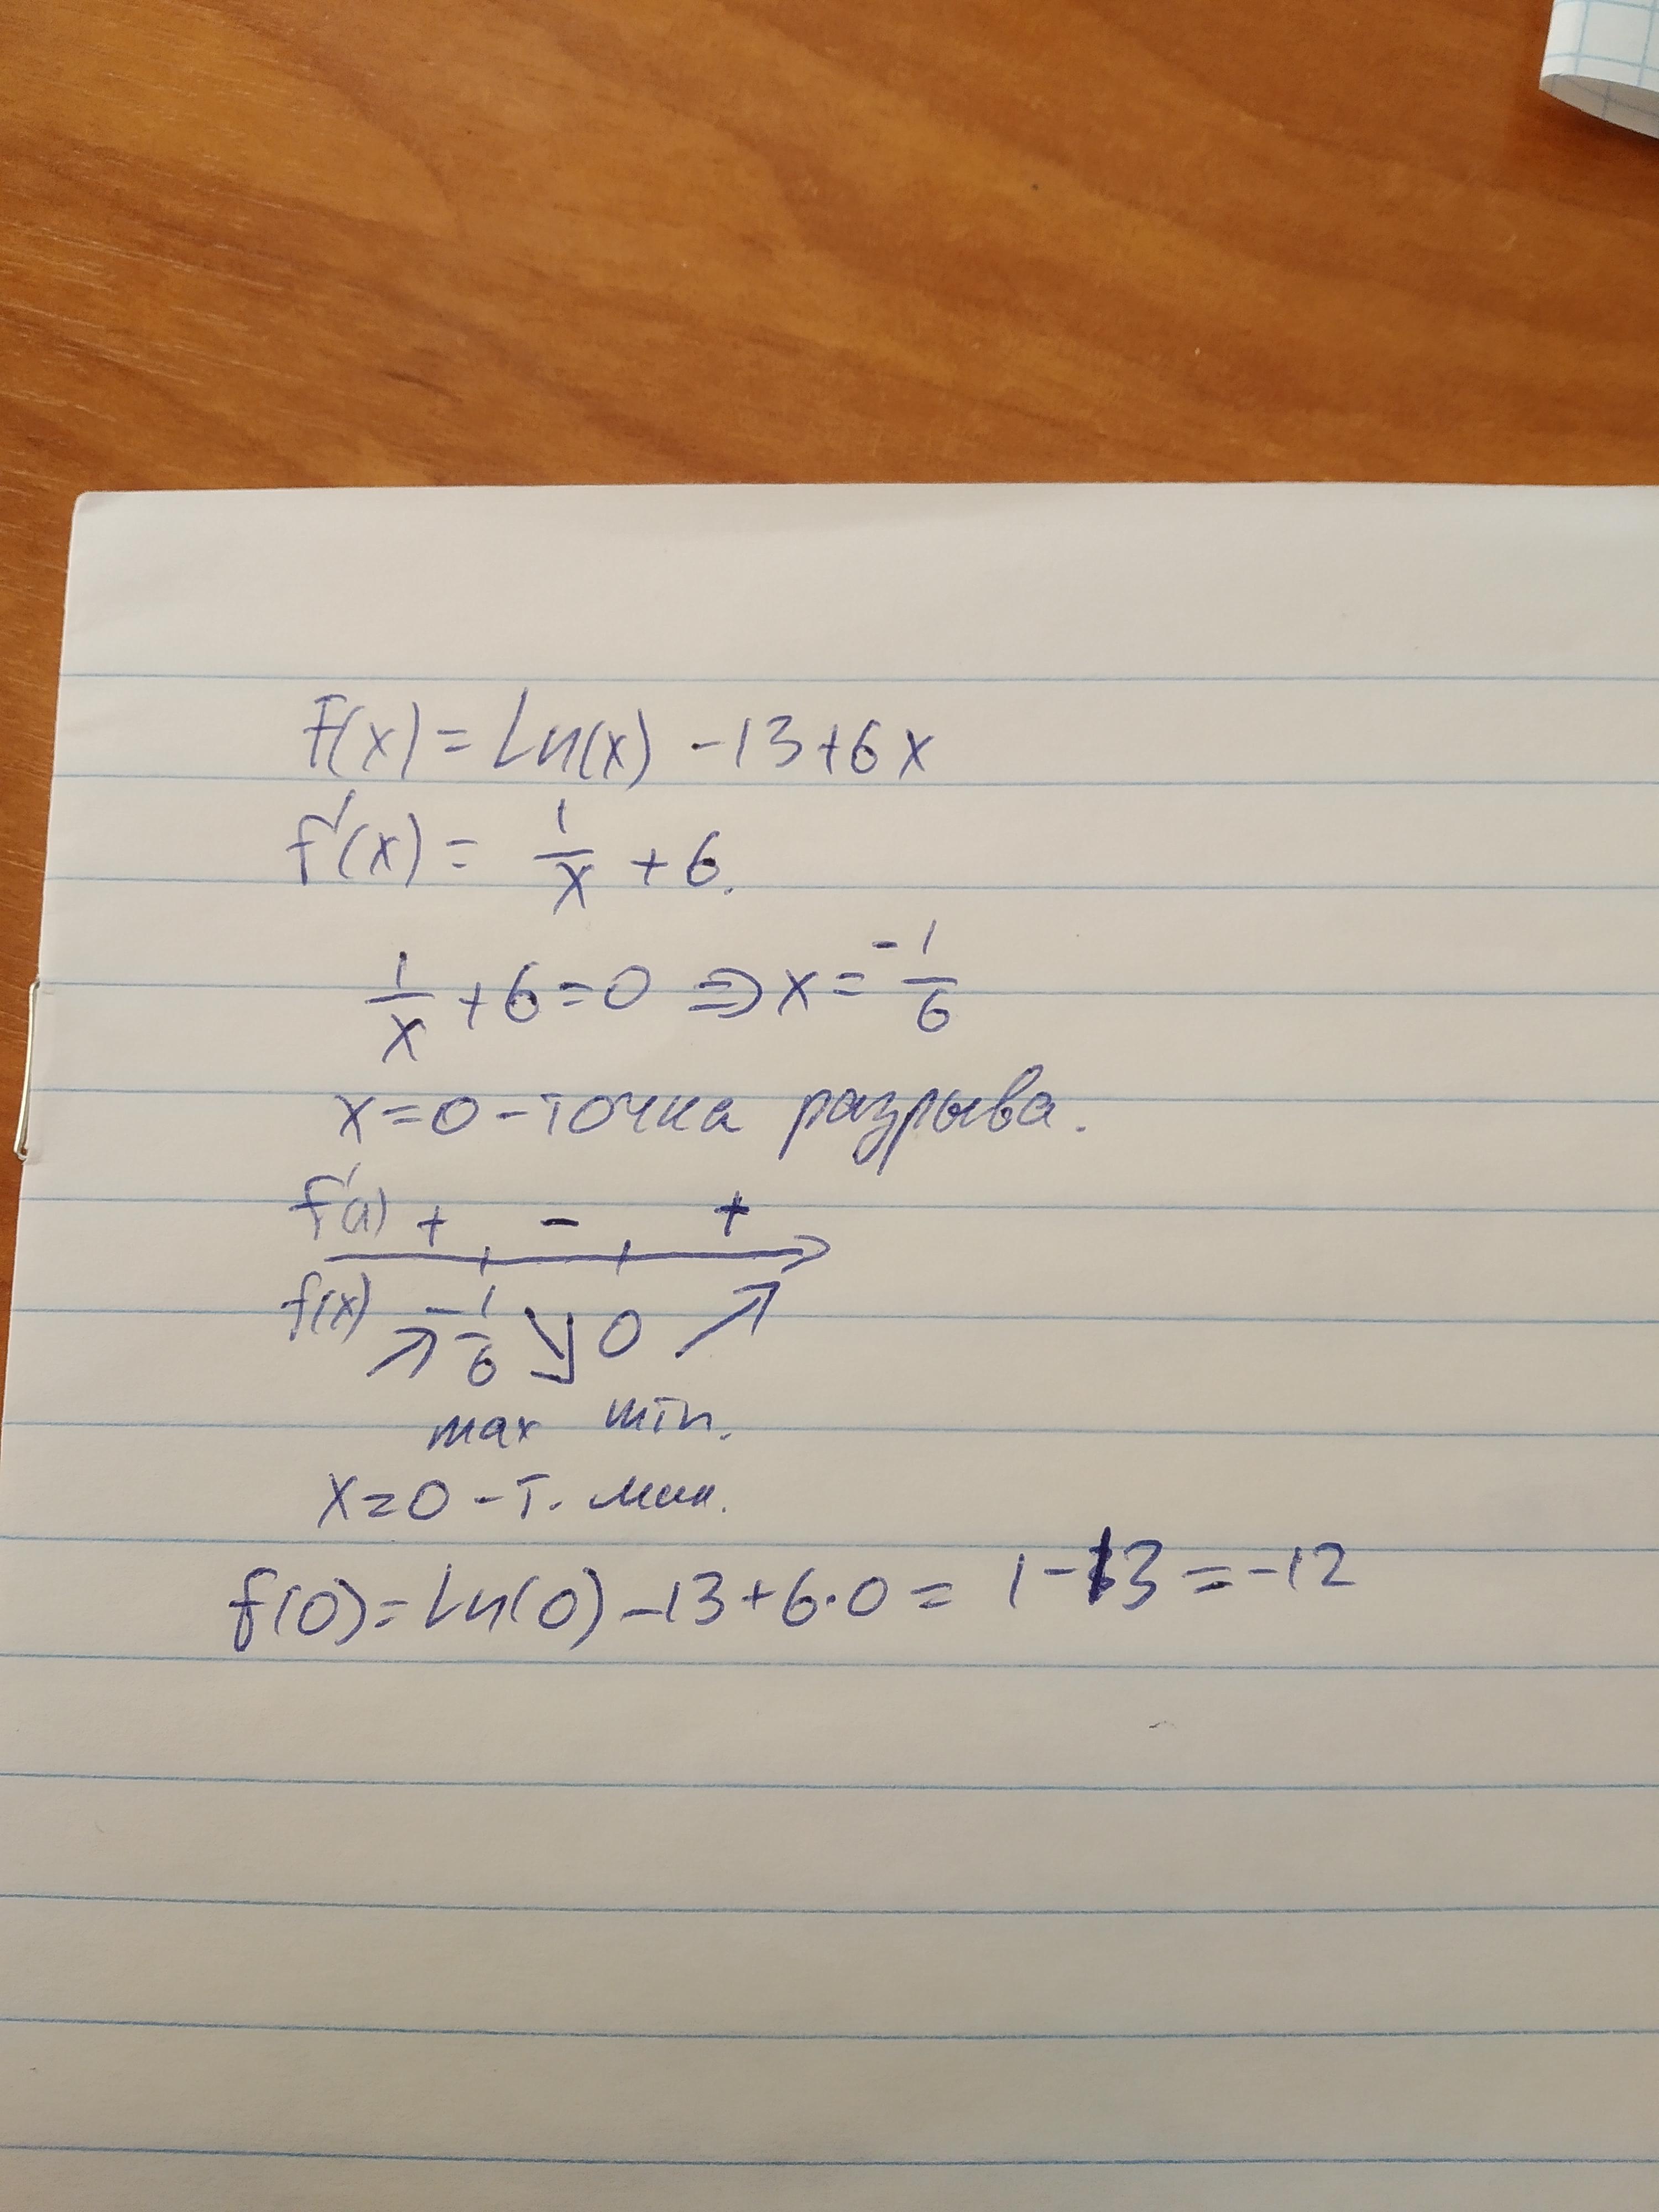 f(x) = Ln(x) - 13 + 6x
f'(x) = 1/x + 6.
1/x + 6 = 0 ⇒ x = -1/6
x = 0 - точка разрыва.
f'(x) + - +
f(x) ↗ -1/6 ↘ 0 ↗
max min.
x = 0 - т. мин.
f(0) = Ln(0) - 13 + 6·0 = 1 - 13 = -12